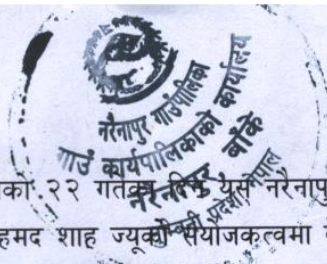 नरैनापुर गाउँपालिका
गाउँ कार्यपालिकाको कार्यालय
नरैनापुर बाँके
प्रदेश, नेपाल
को २२ गतेका दिन यस नरैनापु
हमद शाह ज्यूको संयोजकत्वमा